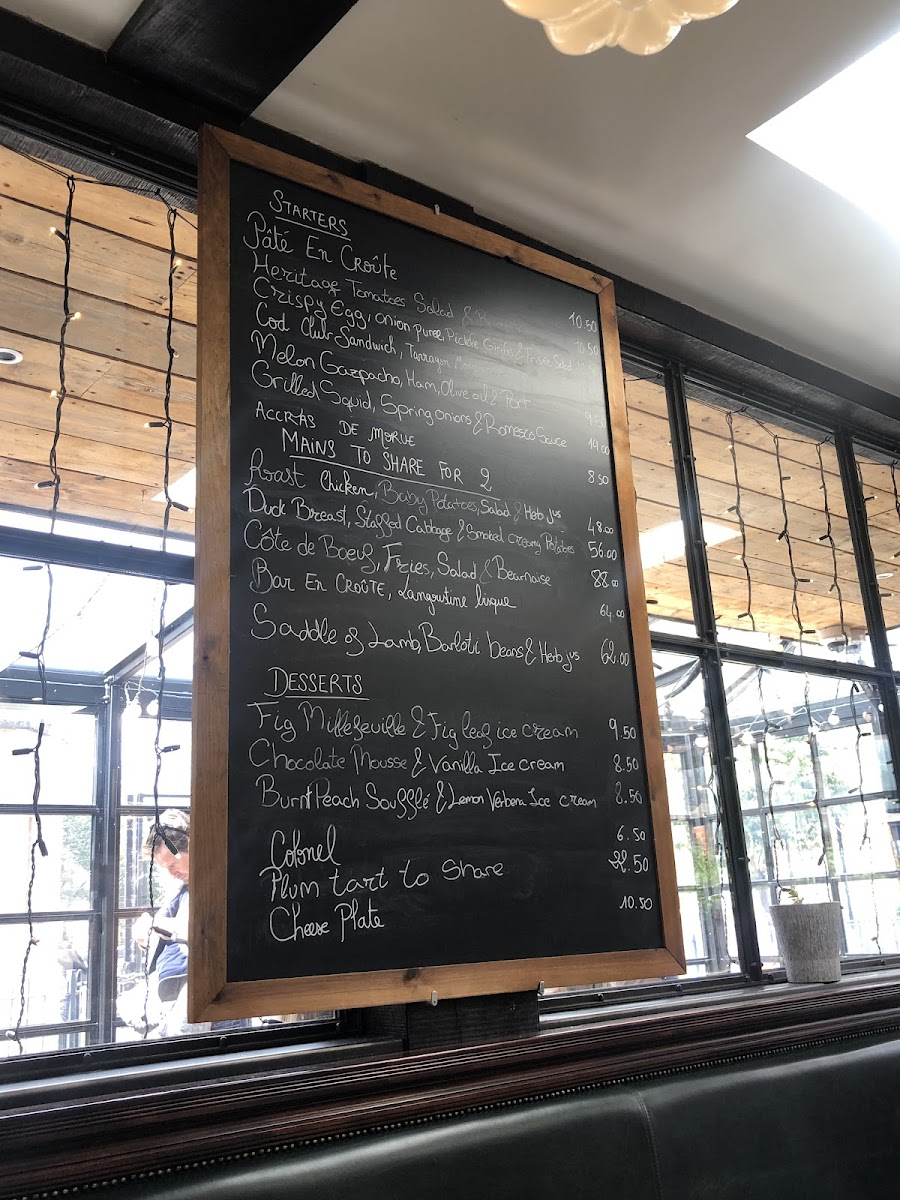 STARTERS
Pâté En Croûte 10.50
Heritage Tomatoes Salad & 10.50
Crispy Egg, onion puree, Pickle Girolles & Frisée Salad
Cod Club Sandwich, Tarragon
Melon Gazpacho, Ham, Olive oil & Port 9.50
Grilled Squid, Spring onions & Romesco Sauce 14.00
ACCRAS DE MORUE 8.50
MAINS TO SHARE FOR 2
Roast Chicken, Baby Potatoes, Salad & Herb jus 48.00
Duck Breast, Staffed Cabbage & Smoked creamy Potatoes 56.00
Côte de Boeuf, Fries, Salad & Bearnaise 88.00
BAR EN CROÛTE, Langoutine bisque 64.00
Saddle of Lamb, Barloti beans & Herb jus 62.00
DESSERTS
Fig Millefeuille & Fig leaf ice cream 9.50
Chocolate Mousse & Vanilla Ice cream 8.50
Burnt Peach Soufflé & Lemon Verbena Ice cream 8.50
Colonel 6.50
Plum tart to share 22.50
Cheese Plate 10.50